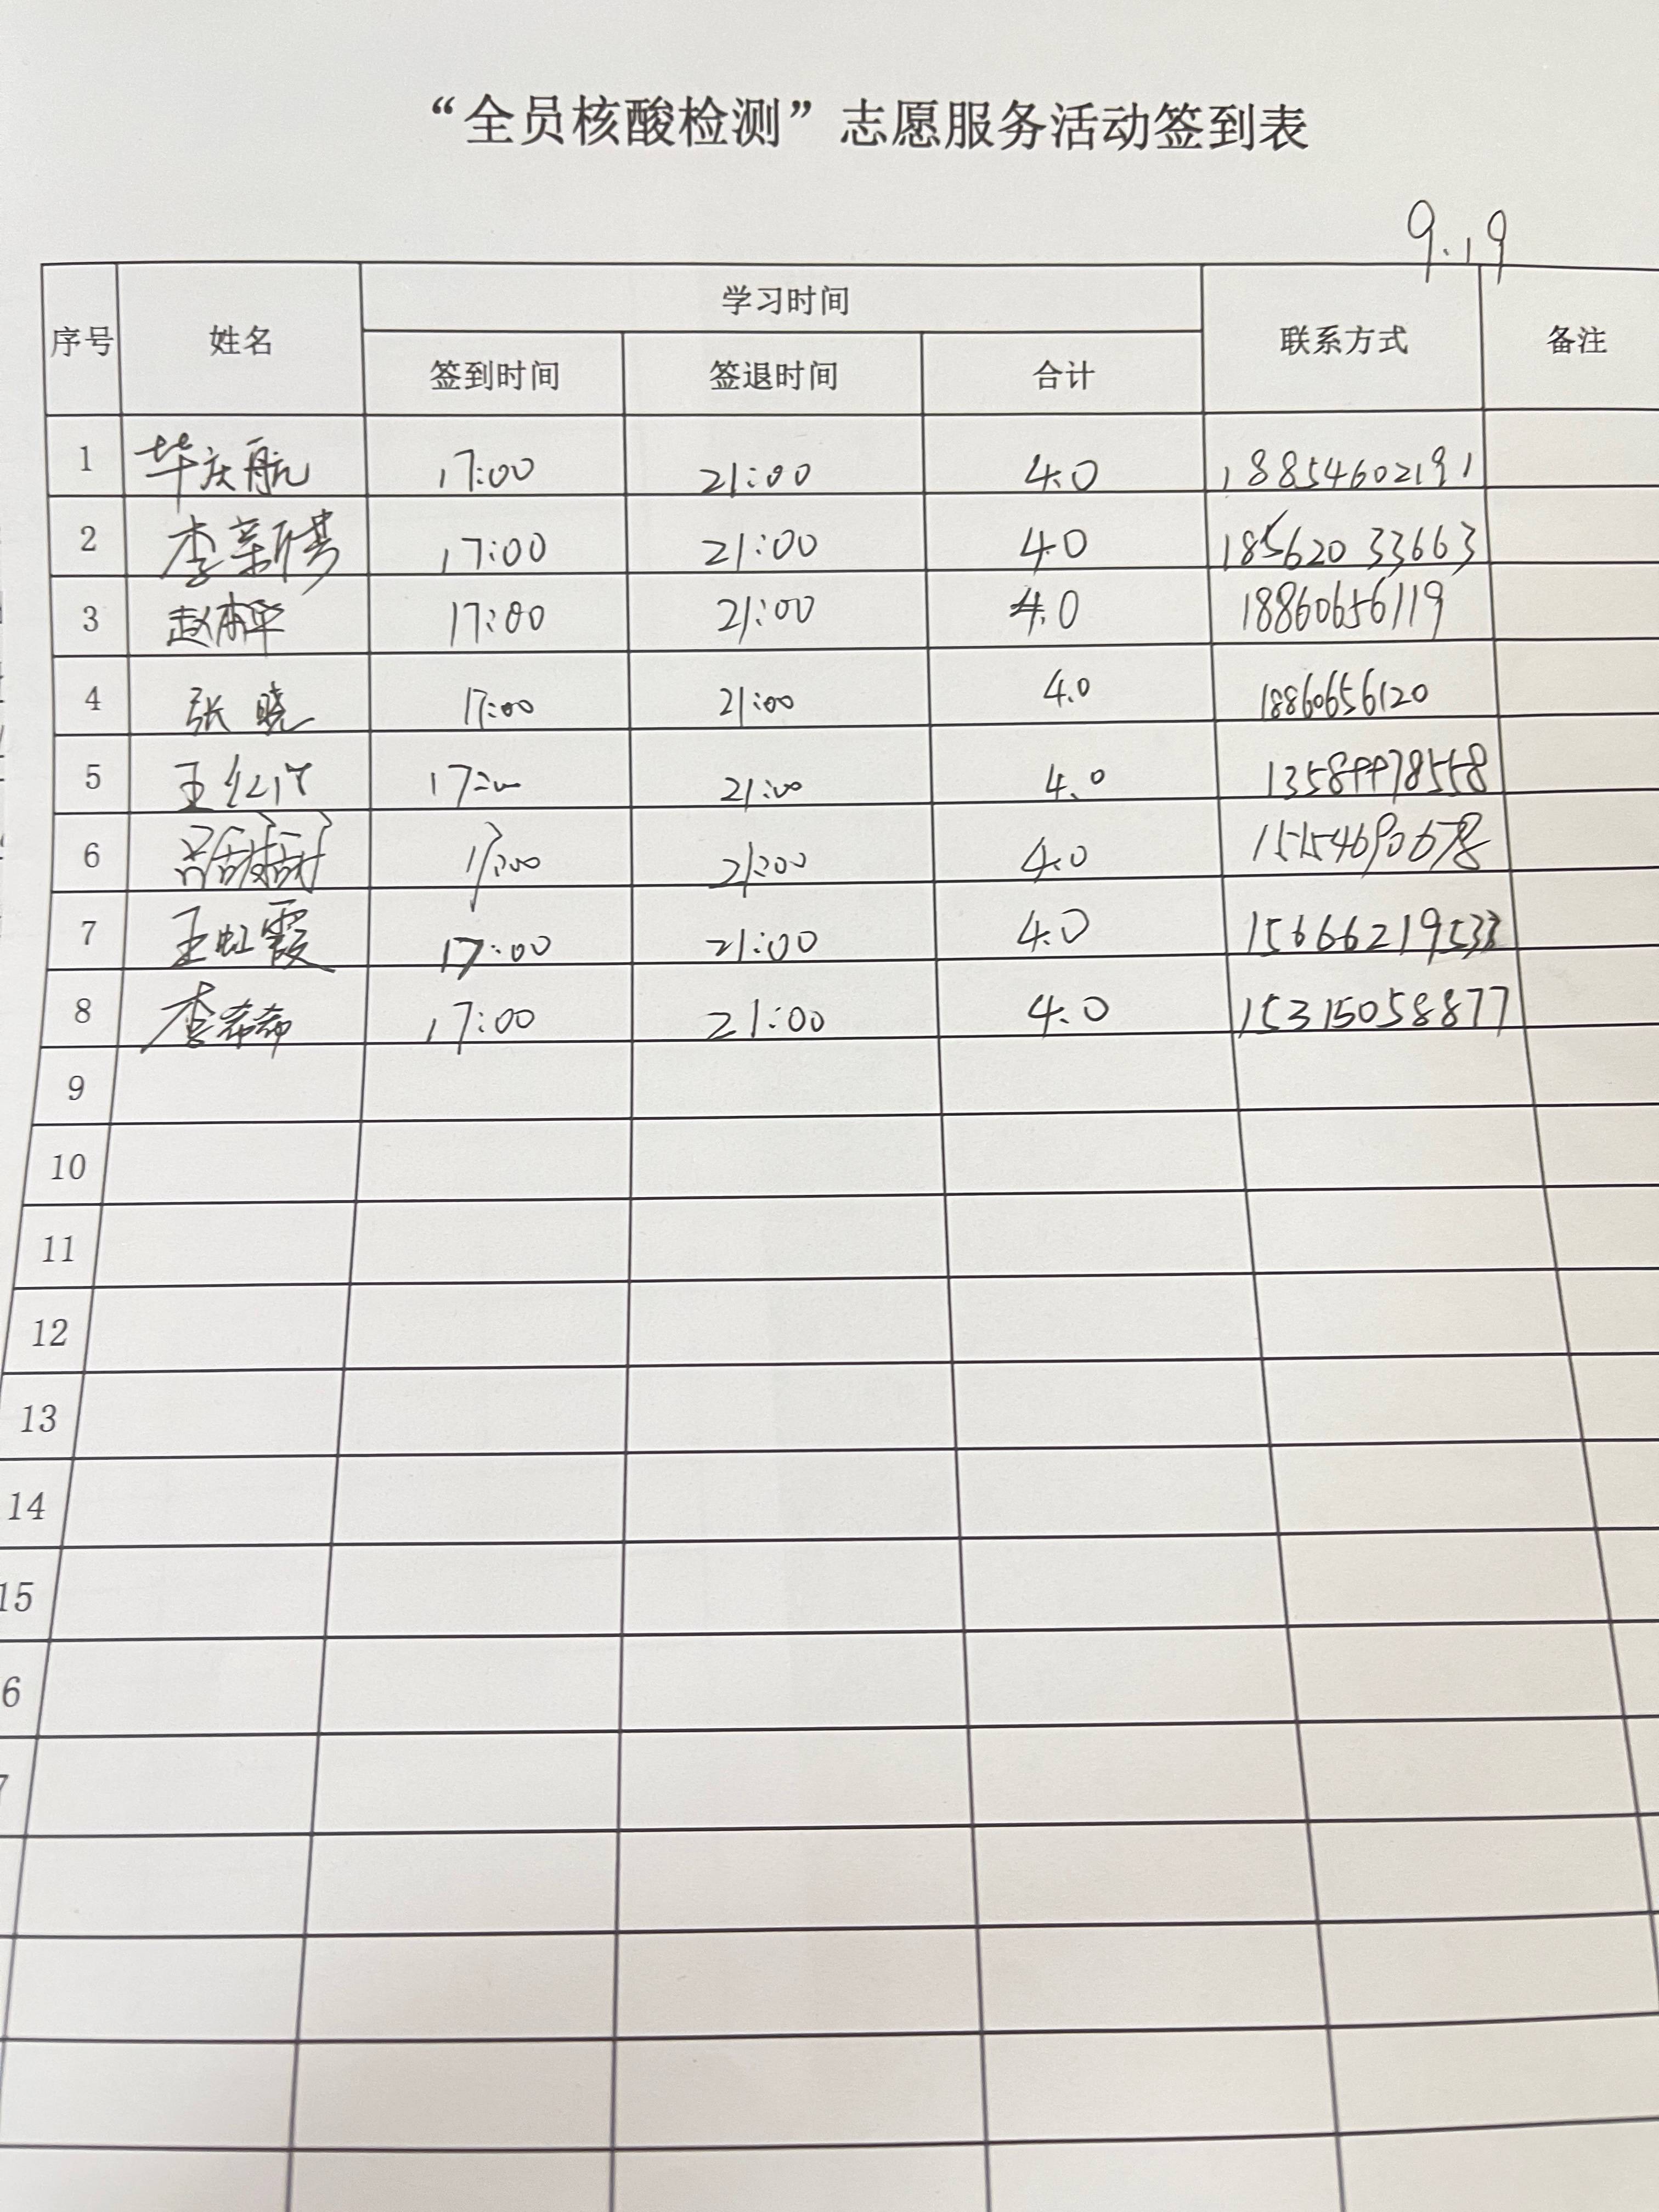 “全员核酸检测”志愿服务活动签到表
9.19
序号 姓名 学习时间 联系方式 备注
签到时间 签退时间 合计
1 毕庆航 17:00 21:00 4.0 18854602191
2 李新琪 17:00 21:00 4.0 18562033663
3 赵 17:00 21:00 4.0 18860656119
4 张晓 17:00 21:00 4.0 18860656120
5 王 17:00 21:00 4.0 13589978558
6 吕甜甜 17:00 21:00 4.0 15154690678
7 王虹霞 17:00 21:00 4.0 15666219533
8 李希希 17:00 21:00 4.0 15315058877
9
10
11
12
13
14
15
6
7